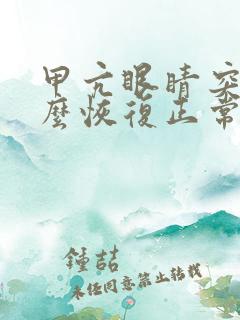 甲亢眼睛突
麼恢復正常
鍾喆
未經同意禁止轉載